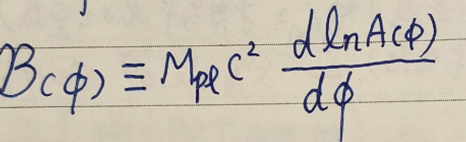 B(φ) ≡ M_{pl} c² \frac{d ln A(φ)}{dφ}